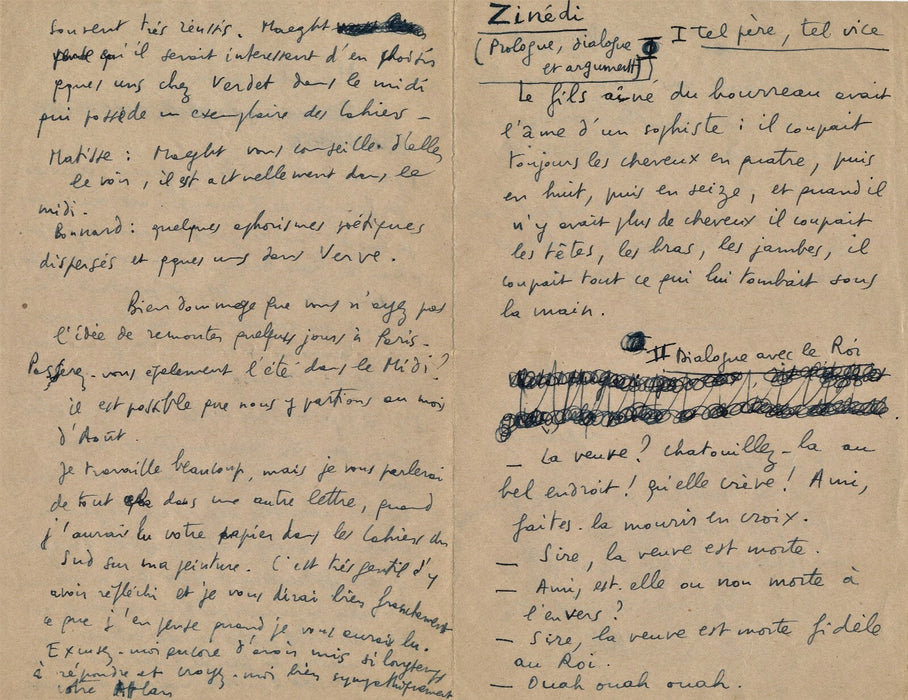 souvent très réussis. Maeght
qu'il serait intéressant d'en choisir
qques uns chez Verdet dans le midi
qui possède un exemplaire des Cahiers –
Matisse : Maeght vous conseille d'aller
le voir, il est actuellement dans le
midi.
Bonnard : quelques aphorismes poétiques
dispersés et qques uns dans Verve.
Bien dommage que vous n'ayez pas
l'idée de remonter quelques jours à Paris.
Passerez-vous également l'été dans le Midi ?
il est possible que nous y partions au mois
d'Août.
Je travaille beaucoup, mais je vous parlerai
de tout dans une autre lettre, quand
j'aurais lu votre papier dans les Cahiers du
Sud sur ma peinture. C'est très gentil d'y
avoir réfléchi et je vous dirai bien franchement
ce que j'en pense quand je vous aurais lu.
Excusez-moi encore d'avoir mis si longtemps
à répondre et croyez-moi bien sympathiquement
votre Atlan
Zinédi
(Prologue, dialogue
et argument)
I tel père, tel vice
Le fils aîné du bourreau avait
l'âme d'un sophiste : il coupait
toujours les cheveux en quatre, puis
en huit, puis en seize, et quand il
n'y avait plus de cheveux il coupait
les têtes, les bras, les jambes, il
coupait tout ce qui lui tombait sous
la main.
II Dialogue avec le Roi
– La veuve ? Chatouillez-la au
bel endroit ! qu'elle crève ! Ami,
faites-la mourir en croix.
– Sire, la veuve est morte.
– Ami, est-elle ou non morte à
l'envers ?
– Sire, la veuve est morte fidèle
au Roi.
– Ouah ouah ouah.